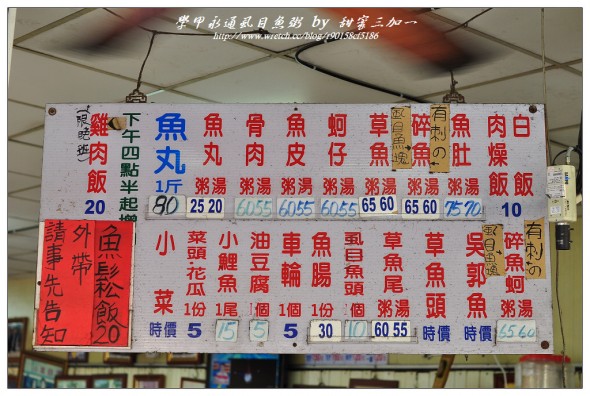 學甲永通虱目魚粥 by 甜蜜三加一
http://www.wretch.cc/blog/r90158cf5186
白飯
肉燥飯
10
魚肚
粥湯
75 70
有刺の
碎魚
粥湯
65 60
虱目魚
草魚
粥湯
65 60
蚵仔
粥湯
60 55
魚皮
粥湯
60 55
骨肉
粥湯
60 55
魚丸
粥湯
25 20
魚丸
1斤
80
下午四點半起
雞肉飯
20
有刺の
碎魚蚵
粥湯
65 60
虱目魚
吳郭魚
時價
草魚頭
時價
草魚尾
粥湯
60 55
虱目魚頭
1個
10
魚腸
30
車輪
1個
5
油豆腐
1個
5
小鯉魚
1尾
15
菜頭花瓜
1份
5
小菜
時價
魚鬆飯20
外帶
請事先告知